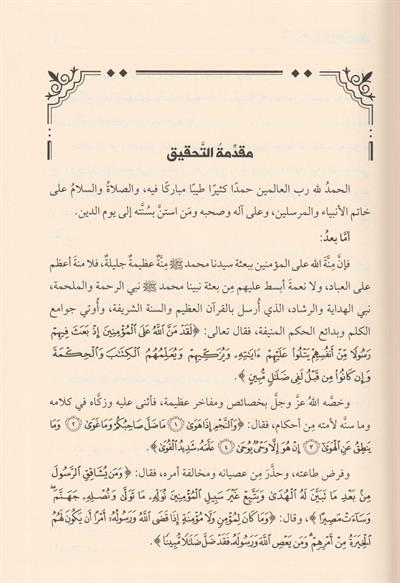 مقدِّمةُ التَّحقيق
الحمدُ لله رب العالمين حمدًا كثيرًا طيبًا مباركًا فيه، والصلاةُ والسلامُ على
خاتم الأنبياء والمرسلين، وعلى آله وصحبه ومَن استنَّ بسُنَّته إلى يوم الدين.
أمَّا بعدُ:
فإنَّ مِنَّةَ الله على المؤمنين ببعثة سيدنا محمد ﷺ مِنَّةٌ عظيمةٌ جليلةٌ، فلا منةَ أعظم
على العباد، ولا نعمةَ أبسط عليهم مِن بعثة نبينا محمد ﷺ نبي الرحمة والملحمة،
نبي الهداية والرشاد، الذي أُرسل بالقرآن العظيم والسنة الشريفة، وأُوتي جوامع
الكلم وبدائع الحكم المنيفة، فقال تعالى: ﴿لَقَدْ مَنَّ ٱللَّهُ عَلَى ٱلْمُؤْمِنِينَ إِذْ بَعَثَ فِيهِمْ
رَسُولًا مِّنْ أَنفُسِهِمْ يَتْلُوا۟ عَلَيْهِمْ ءَايَـٰتِهِۦ وَيُزَكِّيهِمْ وَيُعَلِّمُهُمُ ٱلْكِتَـٰبَ وَٱلْحِكْمَةَ
وَإِن كَانُوا۟ مِن قَبْلُ لَفِى ضَلَـٰلٍ مُّبِينٍ﴾.
وخصَّه اللهُ عزَّ وجلَّ بخصائص ومفاخر عظيمة، فأثنى عليه وزكَّاه في كلامه
وما سنَّه لأمته مِن أحكام، فقال: ﴿وَٱلنَّجْمِ إِذَا هَوَىٰ ١ مَا ضَلَّ صَاحِبُكُمْ وَمَا غَوَىٰ ٢ وَمَا
يَنطِقُ عَنِ ٱلْهَوَىٰٓ ٣ إِنْ هُوَ إِلَّا وَحْىٌ يُوحَىٰ ٤ عَلَّمَهُۥ شَدِيدُ ٱلْقُوَىٰ﴾.
وفرض طاعته، وحذَّر مِن عصيانه ومخالفة أمره، فقال: ﴿وَمَن يُشَاقِقِ ٱلرَّسُولَ
مِنۢ بَعْدِ مَا تَبَيَّنَ لَهُ ٱلْهُدَىٰ وَيَتَّبِعْ غَيْرَ سَبِيلِ ٱلْمُؤْمِنِينَ نُوَلِّهِۦ مَا تَوَلَّىٰ وَنُصْلِهِۦ جَهَنَّمَ ۖ
وَسَآءَتْ مَصِيرًا﴾، وقال: ﴿وَمَا كَانَ لِمُؤْمِنٍ وَلَا مُؤْمِنَةٍ إِذَا قَضَى ٱللَّهُ وَرَسُولُهُۥٓ أَمْرًا أَن يَكُونَ لَهُمُ
ٱلْخِيَرَةُ مِنْ أَمْرِهِمْ ۗ وَمَن يَعْصِ ٱللَّهَ وَرَسُولَهُۥ فَقَدْ ضَلَّ ضَلَـٰلًا مُّبِينًا﴾.